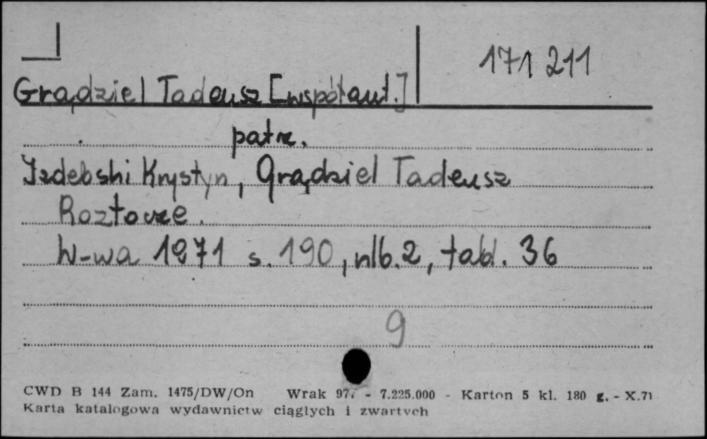 171 211
Grądziel Tadeusz [współaut.]
patrz.
Izdebski Krystyn, Grądziel Tadeusz
Roztocze.
W-wa 1971 s. 190, nlb. 2, tabl. 36
9
CWD B 144 Zam. 1475/DW/On Wrak 977 - 7.225.000 - Karton 5 kl. 180 g. - X.71
Karta katalogowa wydawnictw ciągłych i zwartych